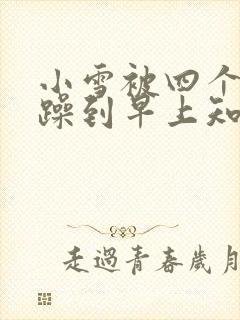 小雪被四个
躁到早上知
走過青春歲月